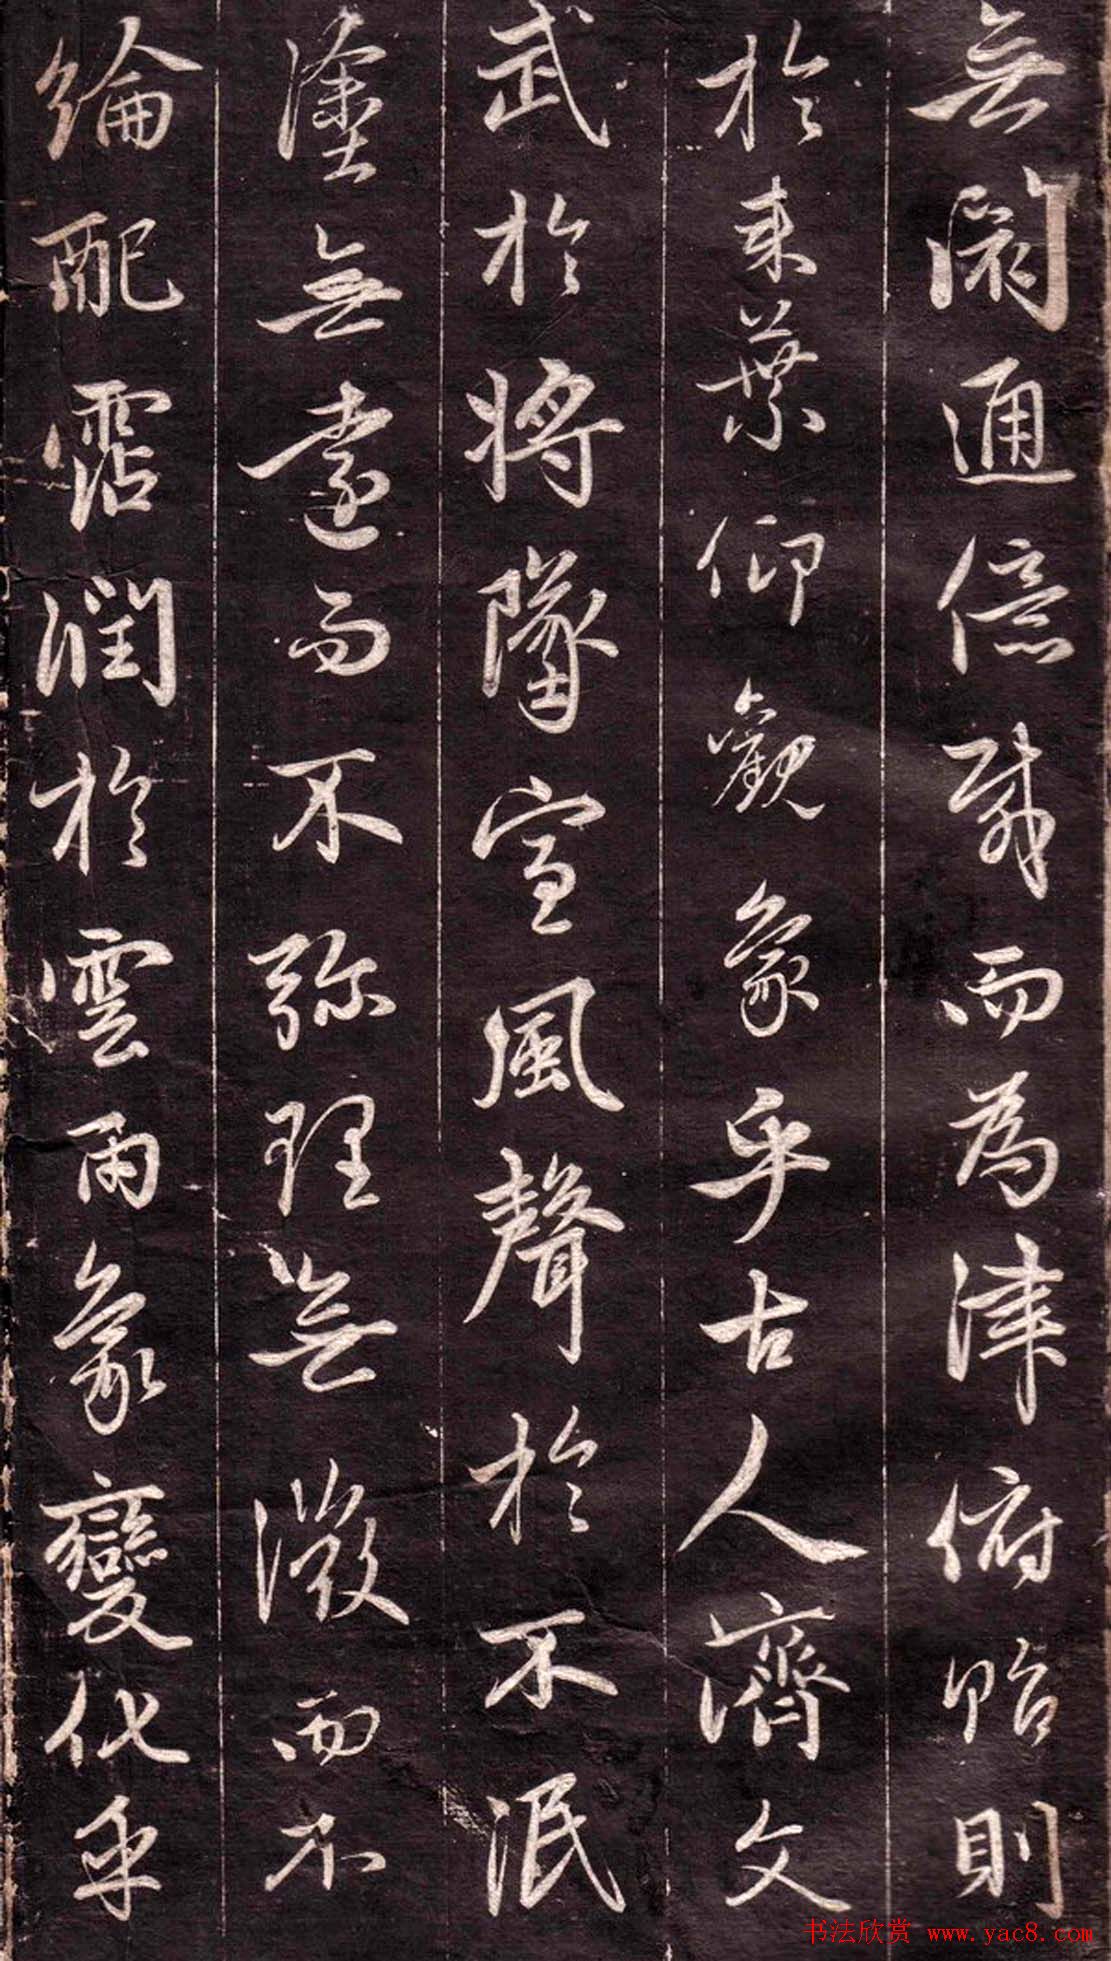 無閡通億載而為津俯貽則
於来葉仰觀象乎古人濟文
武於將墜宣風聲於不泯
塗無遠而不弥理無微而不
綸配霑潤於雲雨象變化乎
书法欣赏 www.yac8.com